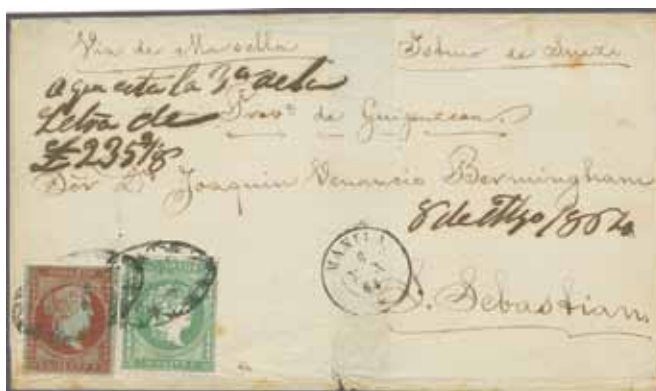 Via de Marsella
Istmo de Suez
aqui esta la 3ª de la
Letra de
£235 9/8
Provª de Guipuzcoa
Sor Dn Joaquin Venancio Bermingham
8 de 1864
MANILA
S. Sebastian